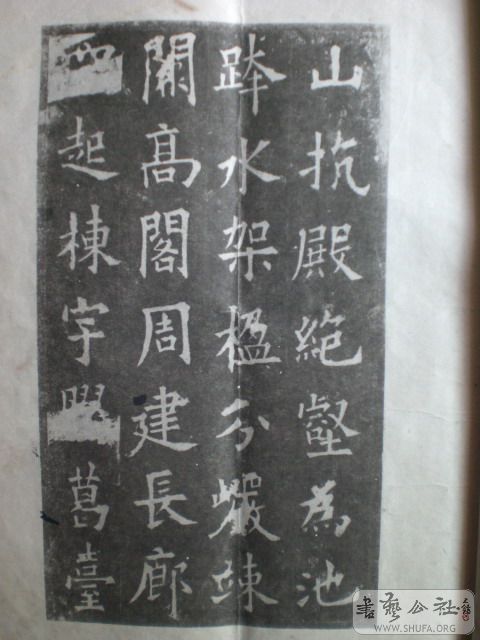 山抗殿絕壑為池
跨水架楹分巖竦
闕高閣周建長廊
四起棟宇葛臺
書藝公社
WWW.SHUFA.ORG